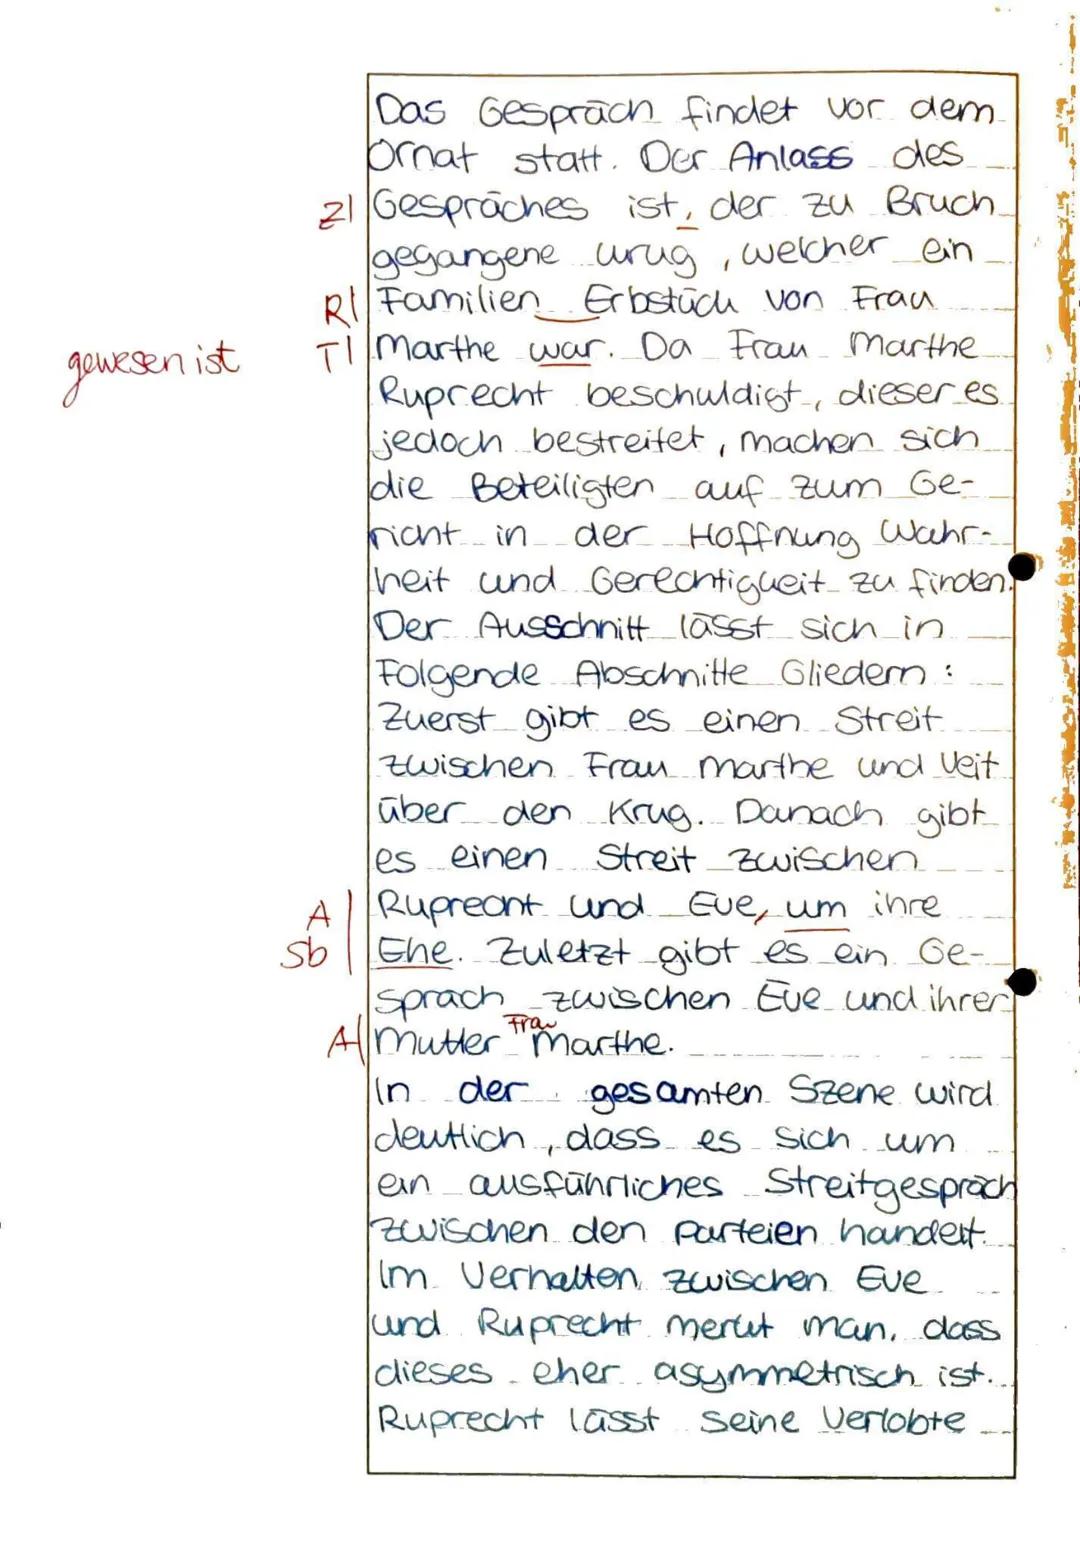 Das Gespräch findet vor dem
Ornat statt. Der Anlass des
Z| Gespräches ist, der zu Bruch
gegangene Krug, welcher ein
R| Familien Erbstück von Frau
gewesen ist T| Marthe war. Da Frau Marthe
Ruprecht beschuldigt, dieser es
jedoch bestreitet, machen sich
die Beteiligten auf zum Ge-
richt in der Hoffnung Wahr-
heit und Gerechtigkeit zu finden.
Der Ausschnitt lässt sich in
Folgende Abschnitte Gliedern:
Zuerst gibt es einen Streit
zwischen Frau Marthe und Veit
über den Krug. Danach gibt
es einen Streit zwischen
A | Ruprecht und Eve, um ihre
Sb | Ehe. Zuletzt gibt es ein Ge-
spräch zwischen Eve und ihrer
A| Mutter Frau Marthe.
In der gesamten Szene wird
deutlich, dass es sich um
ein ausführliches Streitgespräch
zwischen den Parteien handelt.
Im Verhalten zwischen Eve
und Ruprecht merkt man, dass
dieses eher asymmetrisch ist.
Ruprecht lässt seine Verlobte